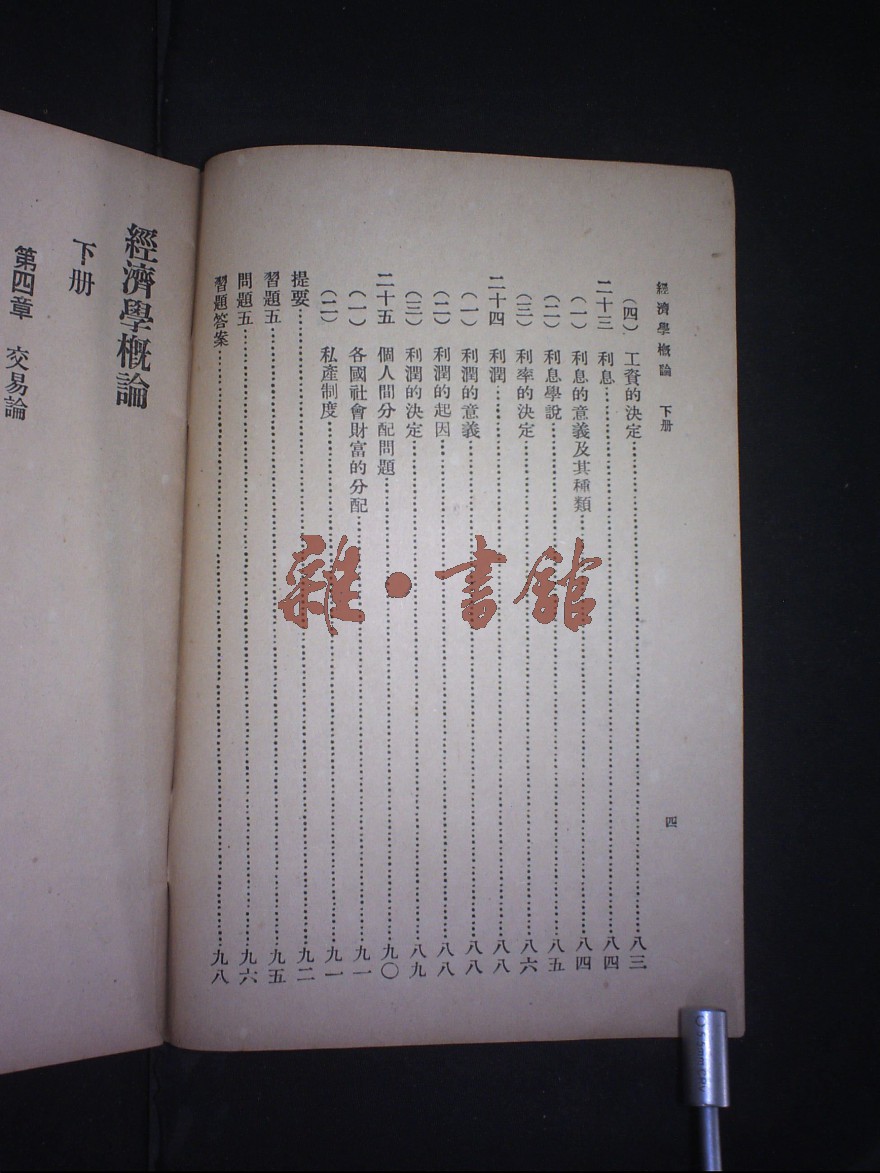 經濟學概論 下册
四
(四) 工資的決定 八三
二十三 利息 八四
(一) 利息的意義及其種類 八四
(二) 利息學說 八五
(三) 利率的決定 八六
二十四 利潤 八八
(一) 利潤的意義 八八
(二) 利潤的起因 八八
(三) 利潤的決定 八九
二十五 個人間分配問題 九〇
(一) 各國社會財富的分配 九一
(二) 私產制度 九一
提要 九二
習題五 九五
問題五 九六
習題答案 九八
經濟學概論
下册
第四章 交易論
雜·書館